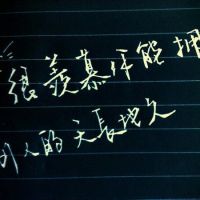 很羡慕你能拥
别人的天長地久